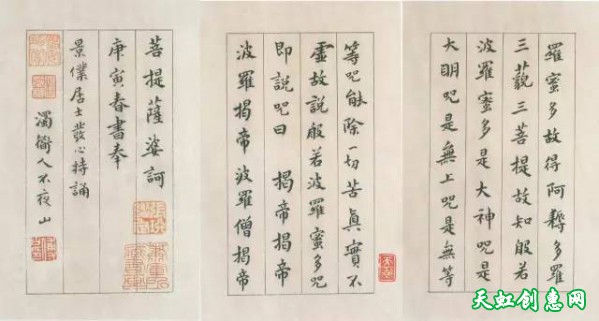 羅蜜多故得阿耨多羅
三藐三菩提故知般若
波羅蜜多是大神咒是
大明咒是無上咒是無等
等咒能除一切苦真實不
虛故說般若波羅蜜多咒
即說咒曰 揭帝揭帝
波羅揭帝波羅僧揭帝
菩提薩婆訶
庚寅春書奉
景僕居士發心持誦
人不夜山
天虹创意网